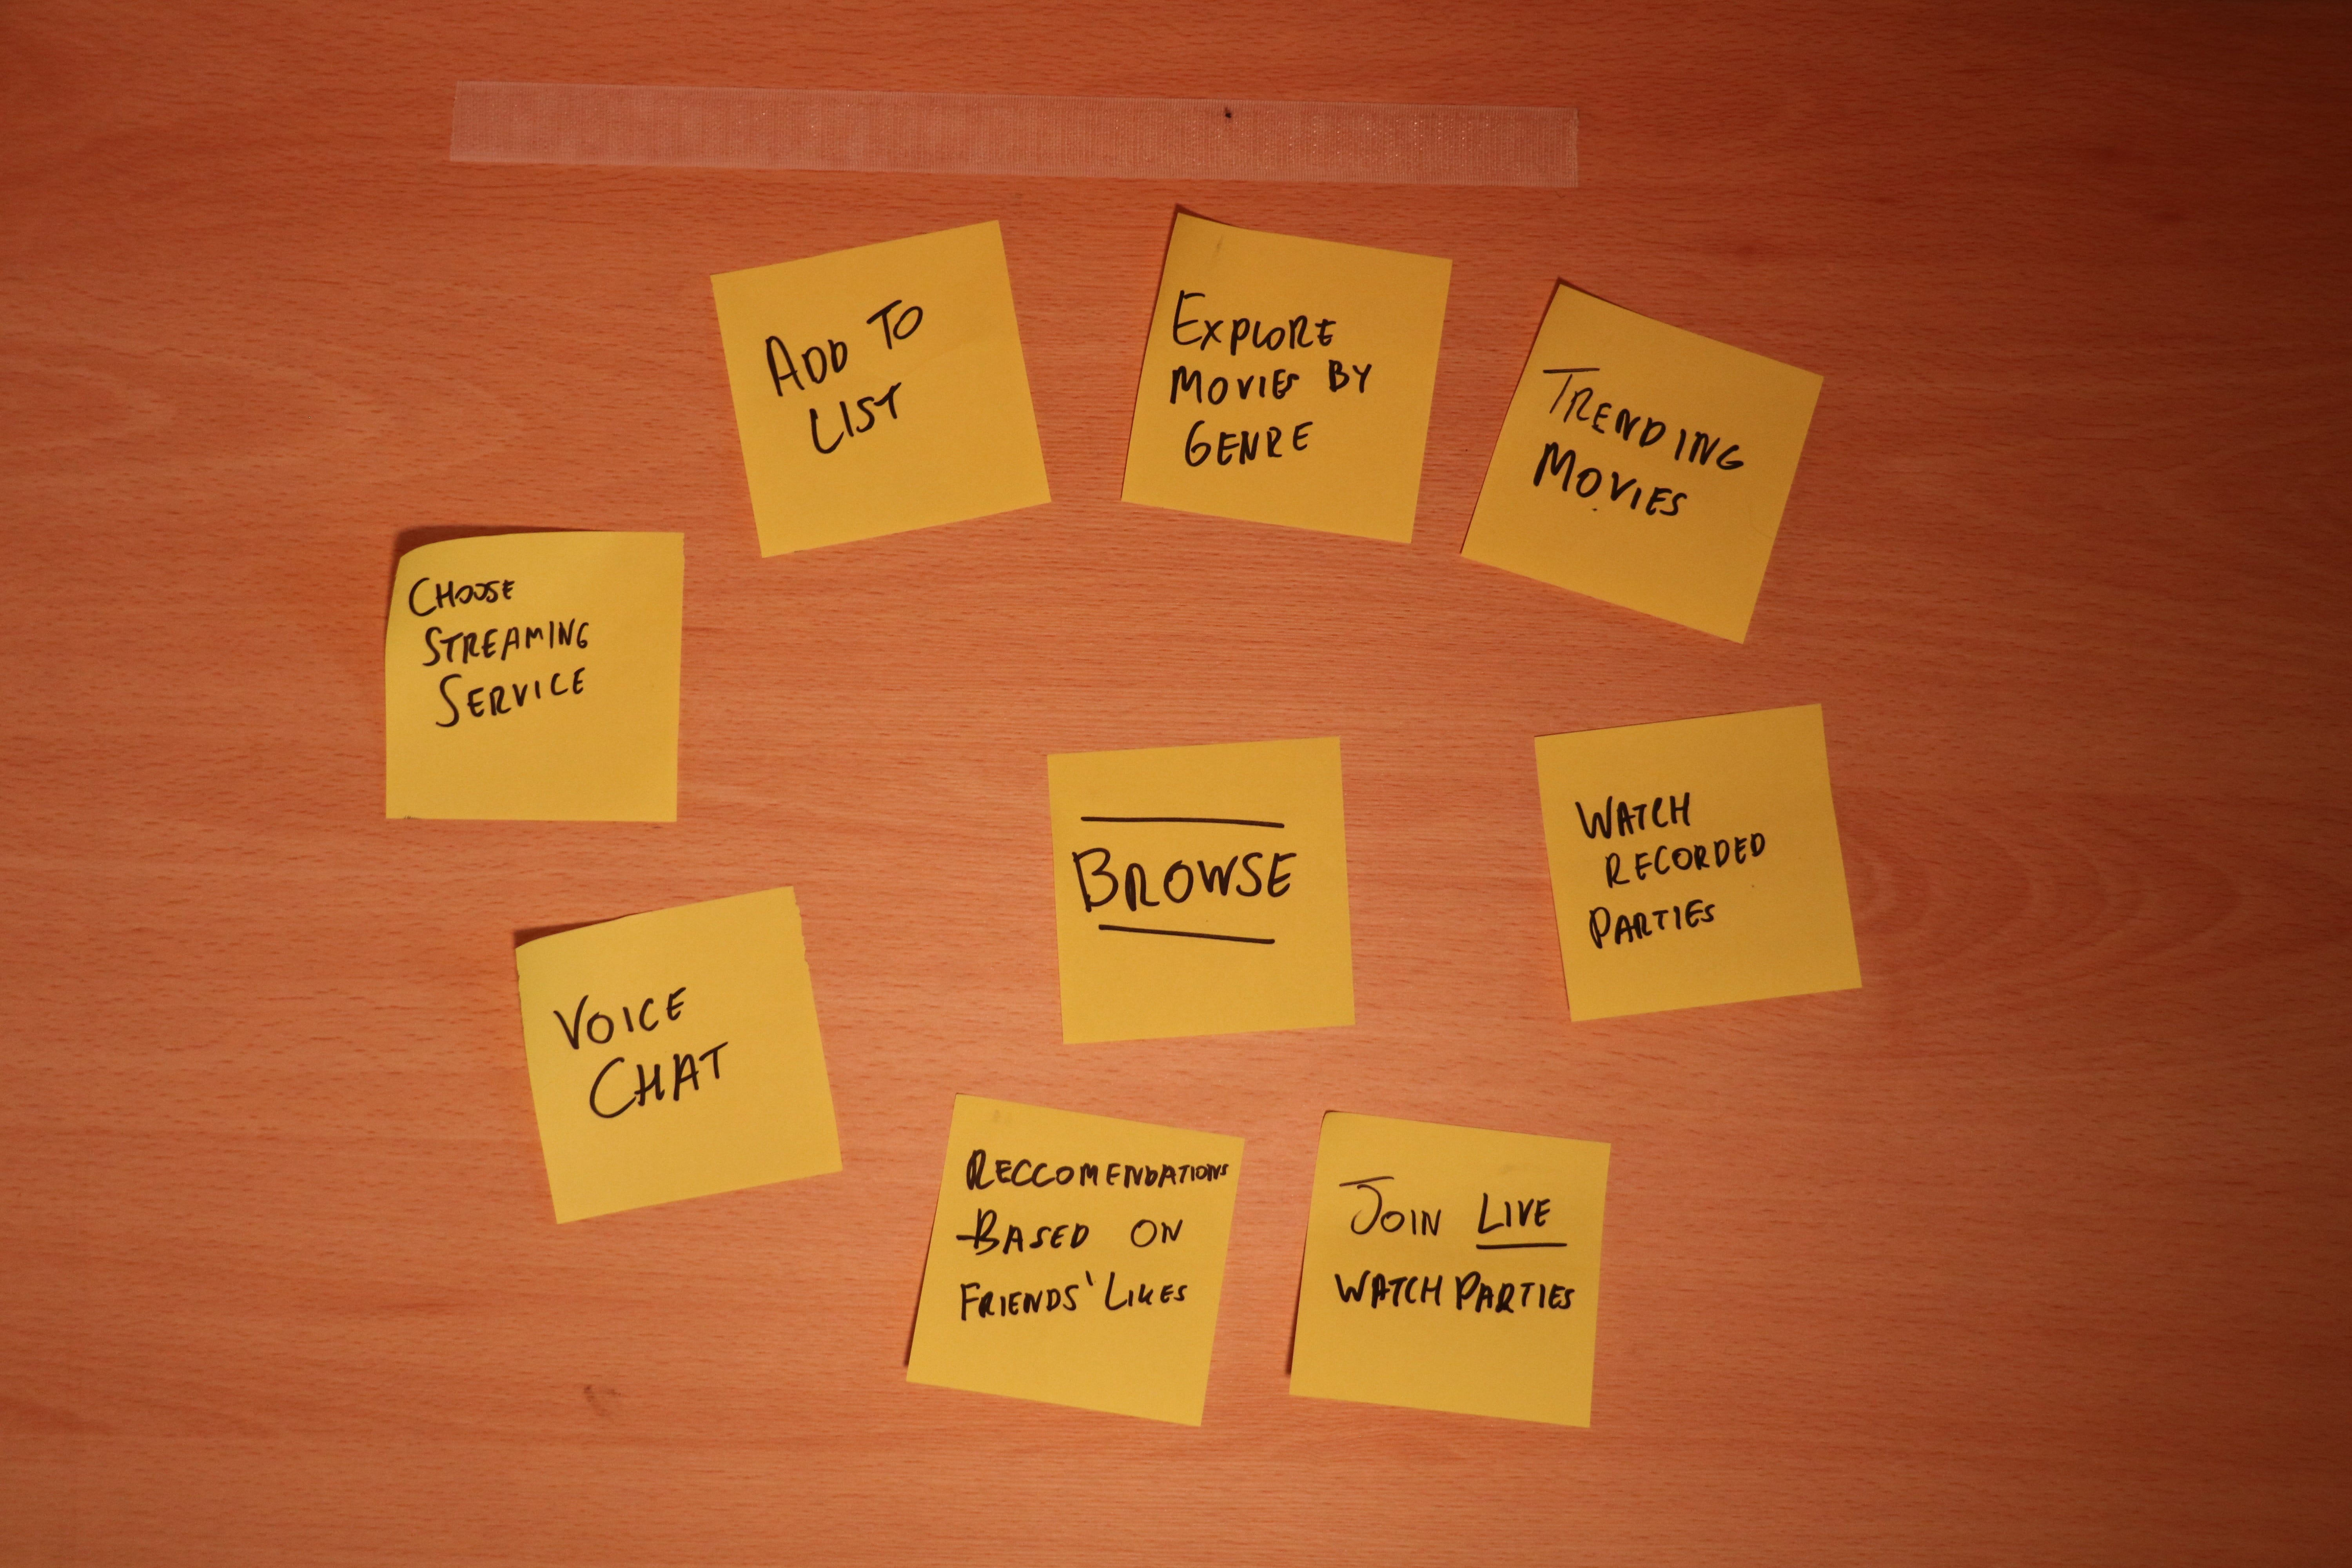 ADD TO
LIST
EXPLORE
MOVIES BY
GENRE
TRENDING
MOVIES
CHOOSE
STREAMING
SERVICE
BROWSE
WATCH
RECORDED
PARTIES
VOICE
CHAT
RECCOMENDATIONS
BASED ON
FRIENDS' LIKES
JOIN LIVE
WATCH PARTIES